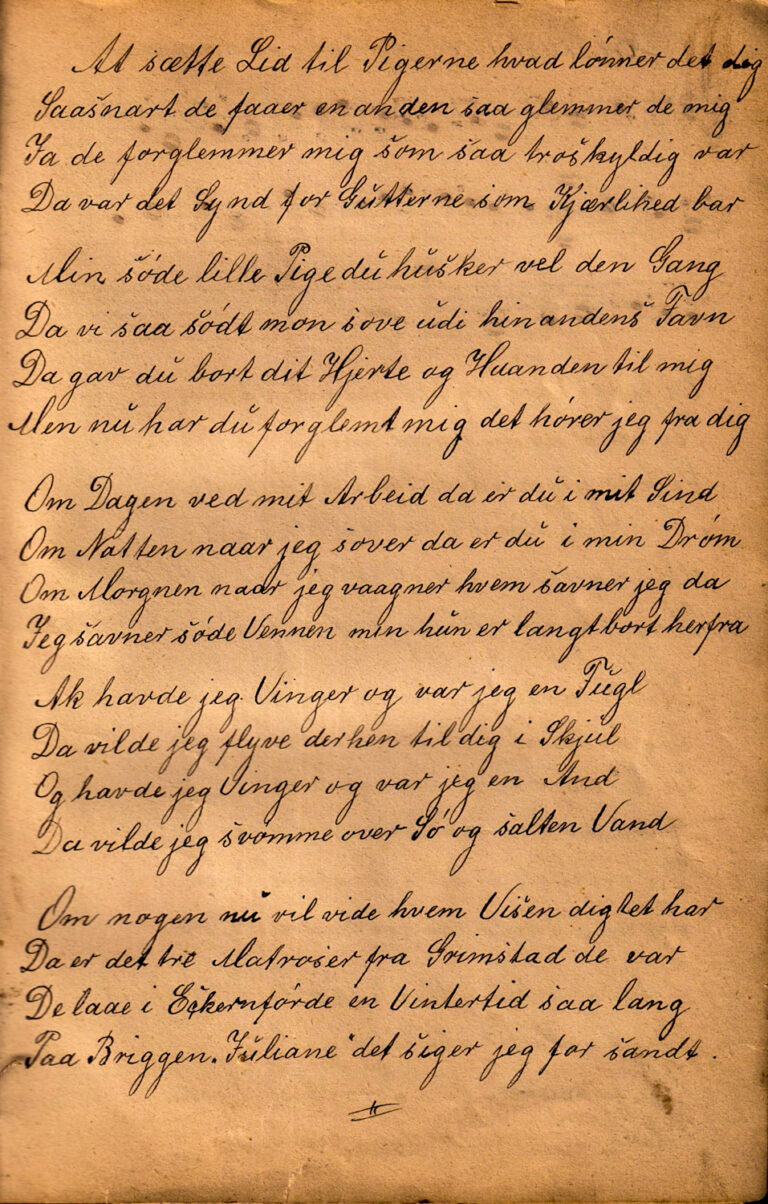 At sætte Lid til Pigerne hvad lønner det dig
Saasnart de faaer en anden saa glemmer de mig
Ja de forglemmer mig som saa troskyldig var
Da var det Synd for Gutterne som Kjærlihed bar
Min søde lille Pige du husker vel den Gang
Da vi saa sødt mon sove udi hinandens Favn
Da gav du bort dit Hjerte og Haanden til mig
Men nu har du forglemt mig det hører jeg fra dig
Om Dagen ved mit Arbeid da er du i mit Sind
Om Natten naar jeg sover da er du i min Drøm
Om Morgnen naar jeg vaagner hvem savner jeg da
Jeg savner søde Vennen min hun er langt bort herfra
Ak havde jeg Vinger og var jeg en Fugl
Da vilde jeg flyve derhen til dig i Skjul
Og havde jeg Vinger og var jeg en And
Da vilde jeg svømme over Sø og salten Vand
Om nogen nu vil vide hvem Visen digtet har
Da er det tre Matroser fra Grimstad de var
De laae i Eckernførde en Vintertid saa lang
Paa Briggen "Juliane" det siger jeg for sandt.